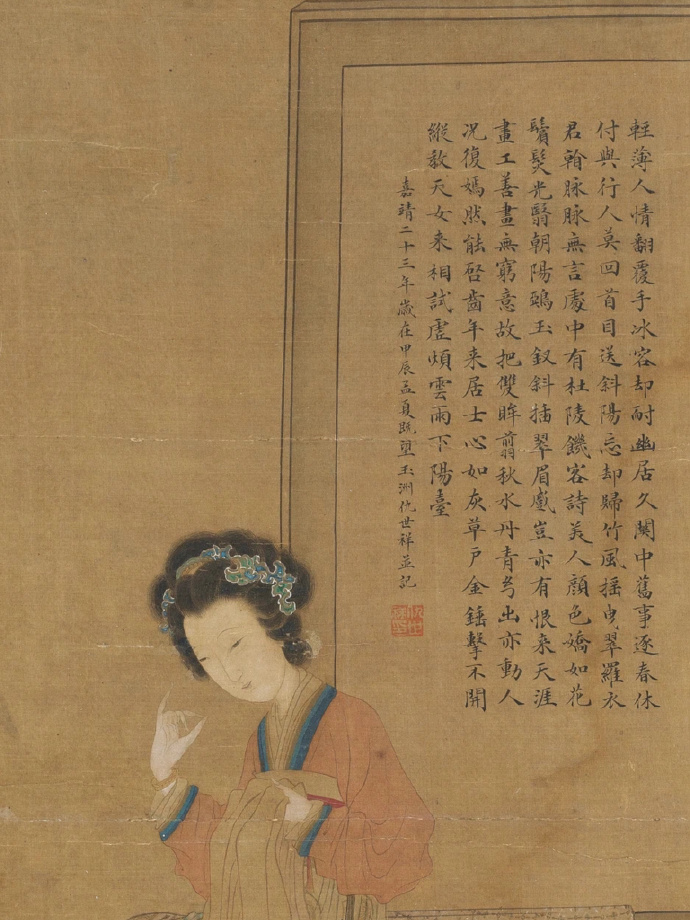 輕薄人情翻覆手冰容却耐幽居久關中舊事逐春休
付與行人莫回首目送斜陽忘却歸竹風搖曳翠羅衣
君翰脉脉無言處中有杜陵饑客詩美人顏色嬌如花
鬢髮光翳朝陽鵶玉釵斜插翠眉蹙豈亦有恨來天涯
畫工善畫無窮意故把雙眸翦秋水丹青出亦動人
况復嫣然能啓齒年来居士心如灰草戶金錘擊不開
縱教天女来相試虛煩雲雨下陽臺
嘉靖二十三年歲在甲辰孟夏既望玉洲仇世祥並記